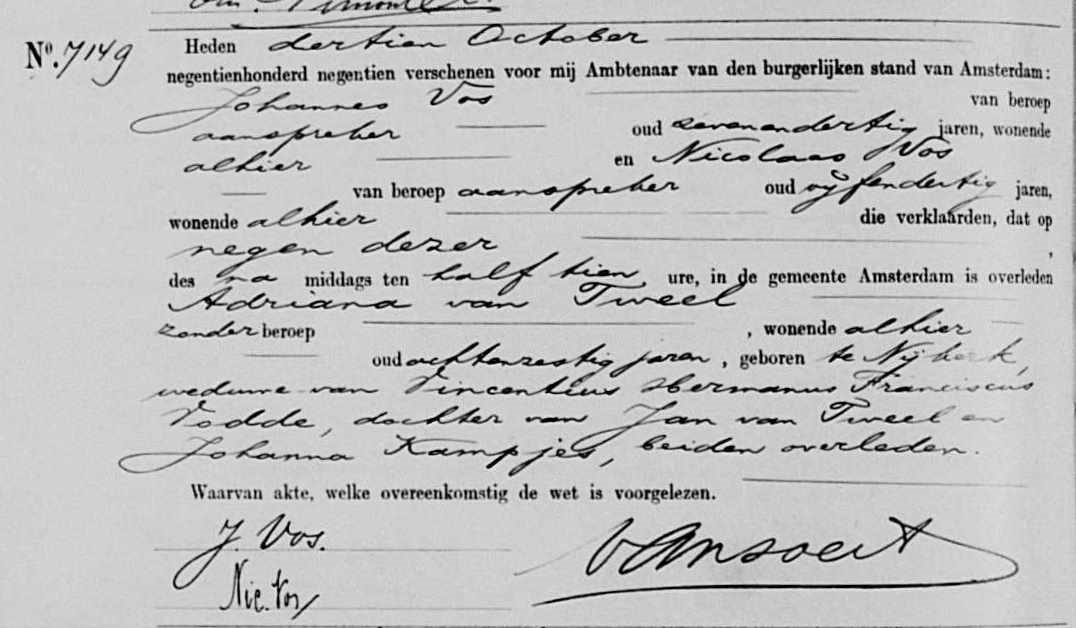 No. 7149
Heden dertien October
negentienhonderd negentien verschenen voor mij Ambtenaar van den burgerlijken stand van Amsterdam:
Johannes Vos van beroep
aanspreker oud zevenendertig jaren, wonende
alhier en Nicolaas Vos
van beroep aanspreker oud vijfendertig jaren,
wonende alhier die verklaarden, dat op
negen dezer ,
des na middags ten half tien ure, in de gemeente Amsterdam is overleden
Adriana van Tweel
zonder beroep , wonende alhier
oud achtenzestig jaren, geboren te Nijkerk,
weduwe van Vincentius Hermanus Franciscus
Vodde, dochter van Jan van Tweel en
Johanna Kampjes, beiden overleden.
Waarvan akte, welke overeenkomstig de wet is voorgelezen.
J. Vos.
Nic. Vos